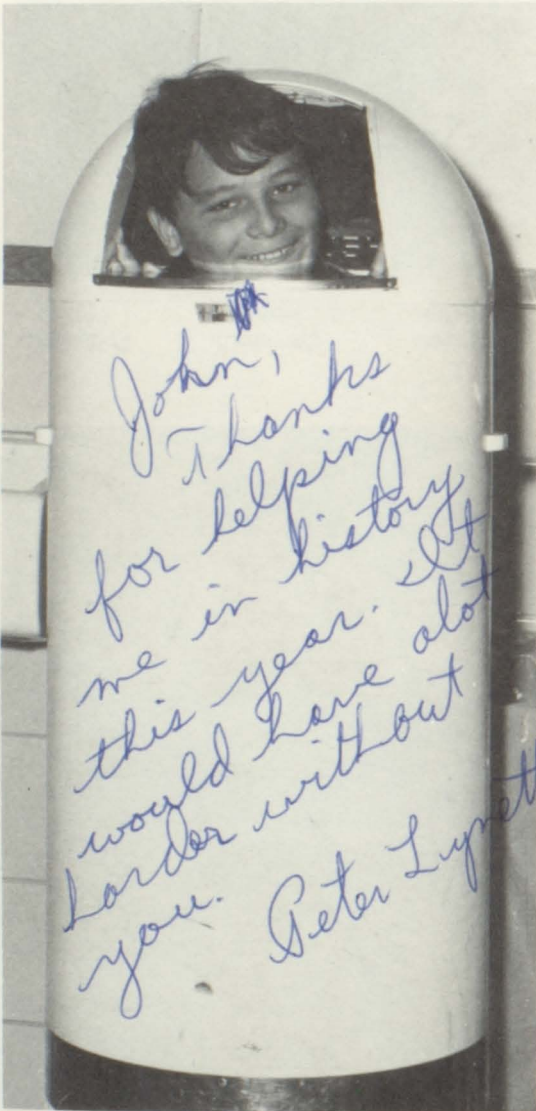 John,
Thanks
for helping
me in history
this year. It
would have alot
harder without
you. Peter